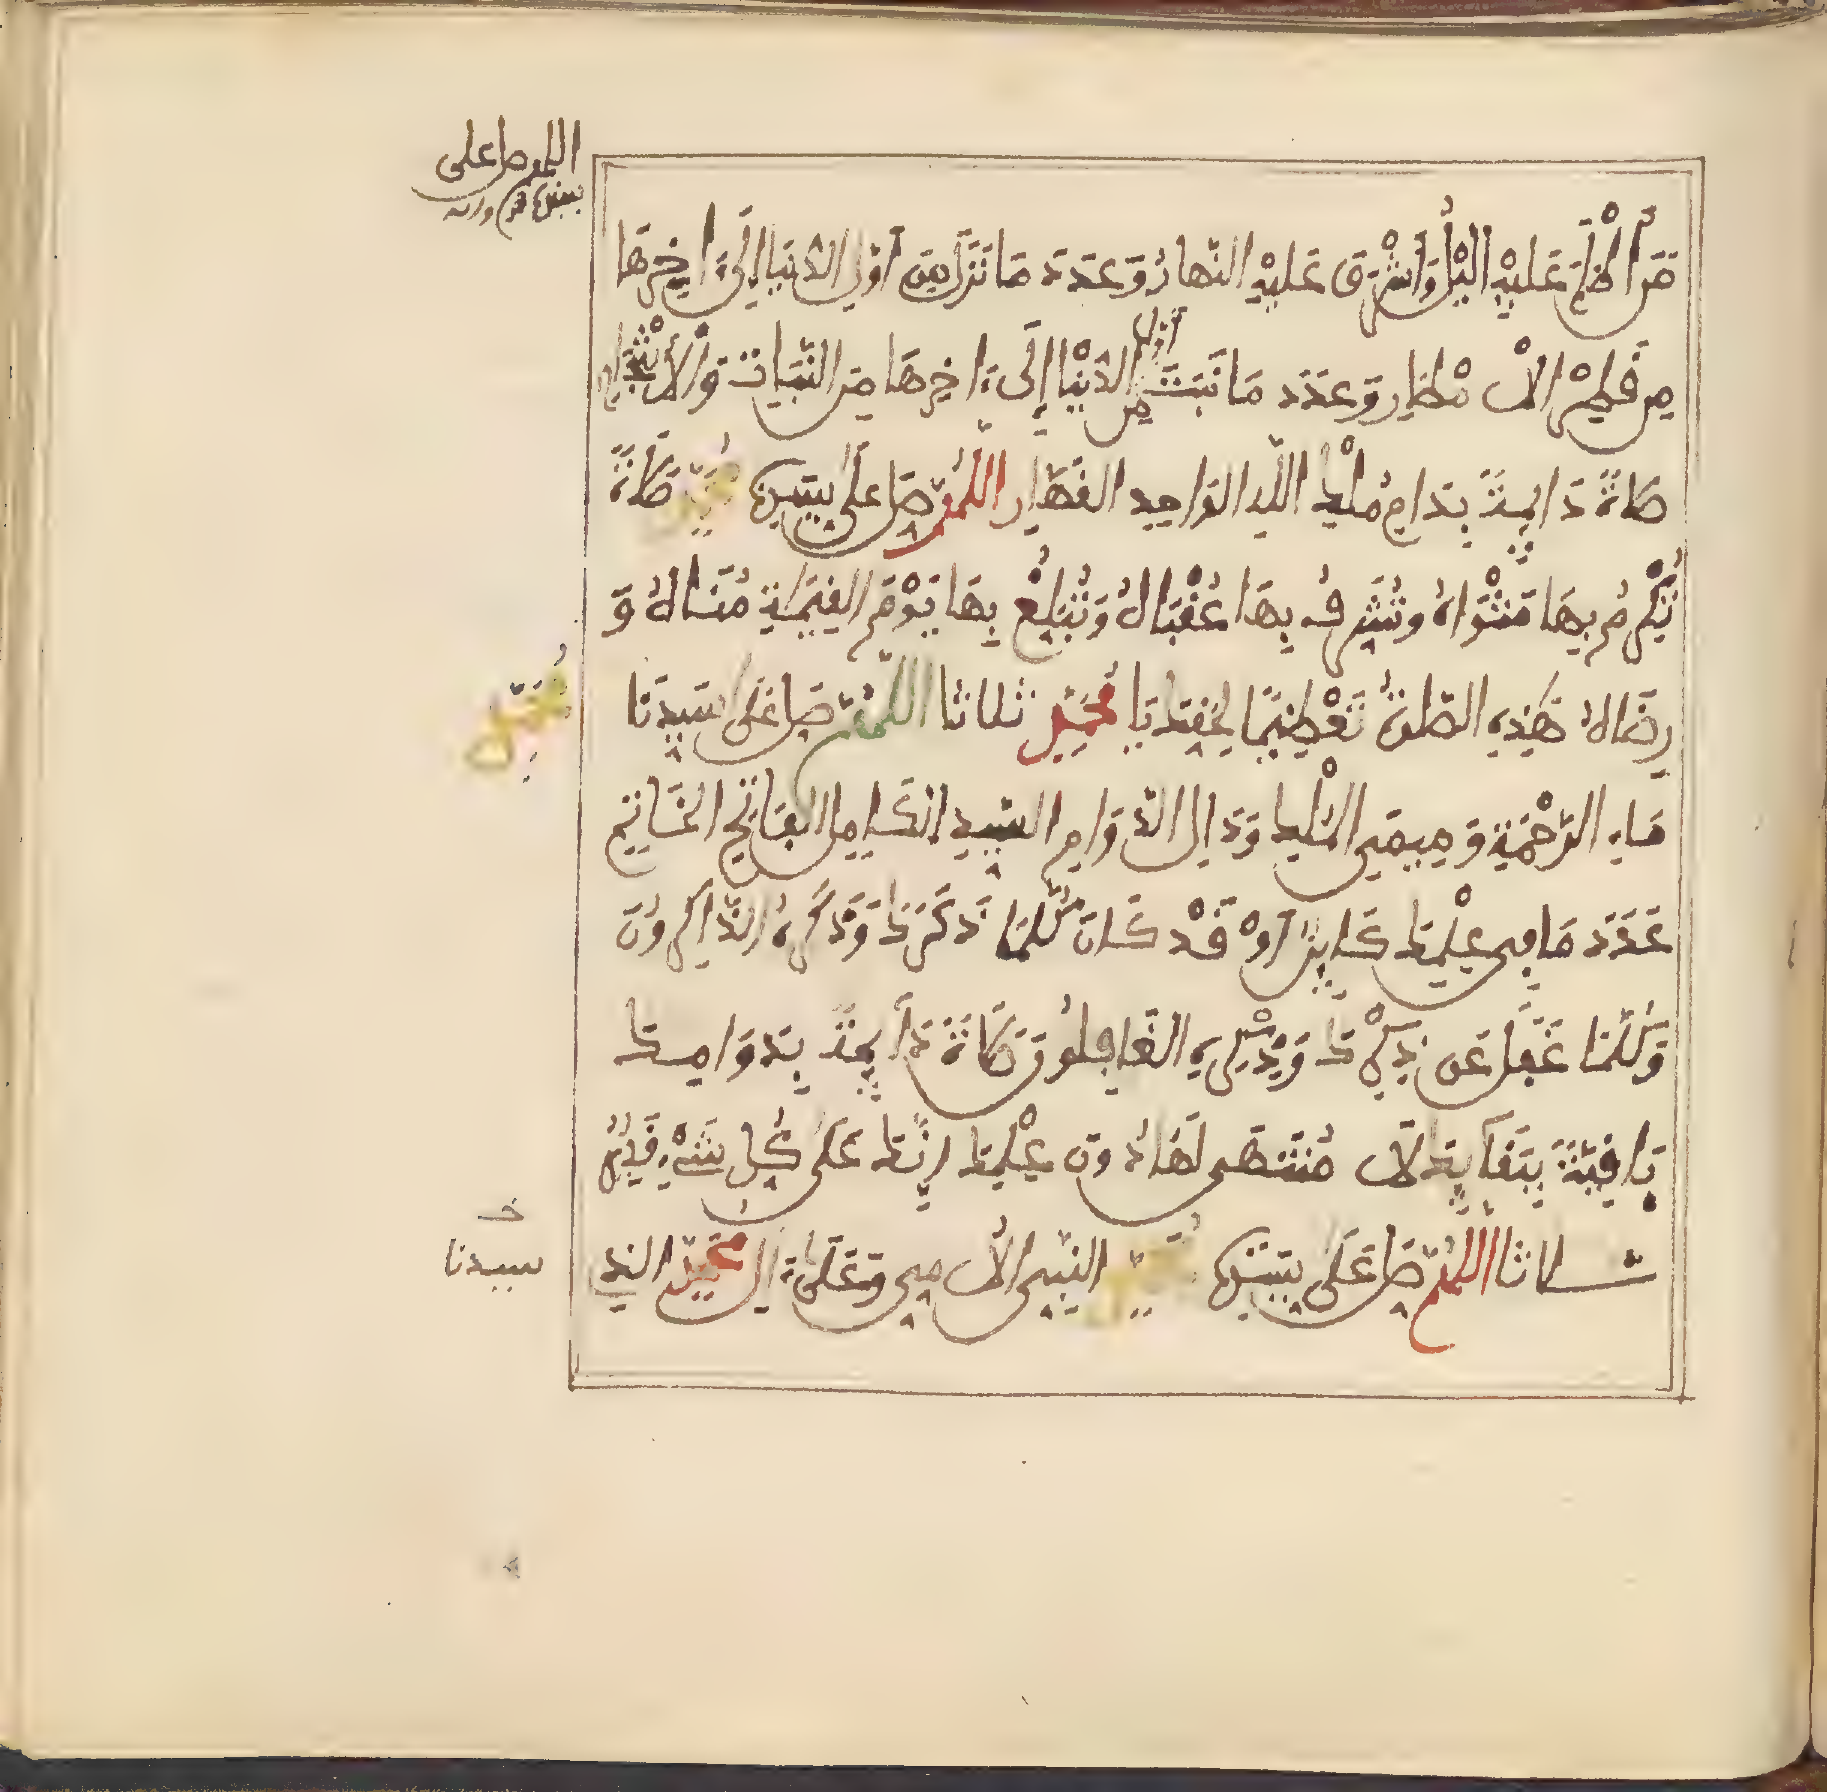 اللهم صل على
سيدنا محمد وءاله
مَنْ أَظْلَمَ عَلَيْهِ الَّيْلُ وَأَشْرَقَ عَلَيْهِ النَّهَارُ وَعَدَدَ مَا نَزَلَ مِنَ أَوَّلِ الدُّنْيَا إِلَىٰ ءَاخِرِهَا
مِن قَطْرِ الْأَمْطَارِ وَعَدَدَ مَا نَبَتَ مِن أَوَّلِ الدُّنْيَا إِلَىٰ ءَاخِرِهَا مِنَ النَّبَاتِ وَالْأَشْجَارِ
صَلَاةً دَائِمَةً بِدَوَامِ مُلْكِ اللَّهِ الْوَاحِدِ الْقَهَّارِ اللَّهُمَّ صَلِّ عَلَى سَيِّدِنَا مُحَمَّدٍ صَلَاةً
تُكْرِمُ بِهَا مَثْوَاهُ وَتُشَرِّفُ بِهَا عُقْبَاهُ وَتُبَلِّغُ بِهَا يَوْمَ الْقِيَامَةِ مُنَاهُ وَ
رِضَاهُ هَذِهِ الصَّلَاةُ تَعْظِيمًا لِحَقِّكَ يَا مُحَمَّدُ ثلاثا اللَّهُمَّ صَلِّ عَلَى سَيِّدِنَا
مُحَمَّدٍ
حَاءِ الرَّحْمَةِ وَمِيمَيِ الْمُلْكِ وَدَالِ الدَّوَامِ السَّيِّدِ الْكَامِلِ الْفَاتِحِ الْخَاتِمِ
عَدَدَ مَا فِي عِلْمِكَ كَائِنٌ أَوْ قَدْ كَانَ كُلَّمَا ذَكَرَكَ وَذَكَرَهُ الذَّاكِرُونَ
وَكُلَّمَا غَفَلَ عَن ذِكْرِكَ وَذِكْرِهِ الْغَافِلُونَ صَلَاةً دَائِمَةً بِدَوَامِكَ
بَاقِيَةً بِبَقَائِكَ لَا مُنْتَهَى لَهَا دُونَ عِلْمِكَ إِنَّكَ عَلَى كُلِّ شَيْءٍ قَدِيرٌ
ثلاثا اللَّهُمَّ صَلِّ عَلَى سَيِّدِنَا مُحَمَّدٍ النَّبِيِّ الْأُمِّيِّ وَعَلَىٰ ءَالِ مُحَمَّدٍ الذي
خ
سيدنا